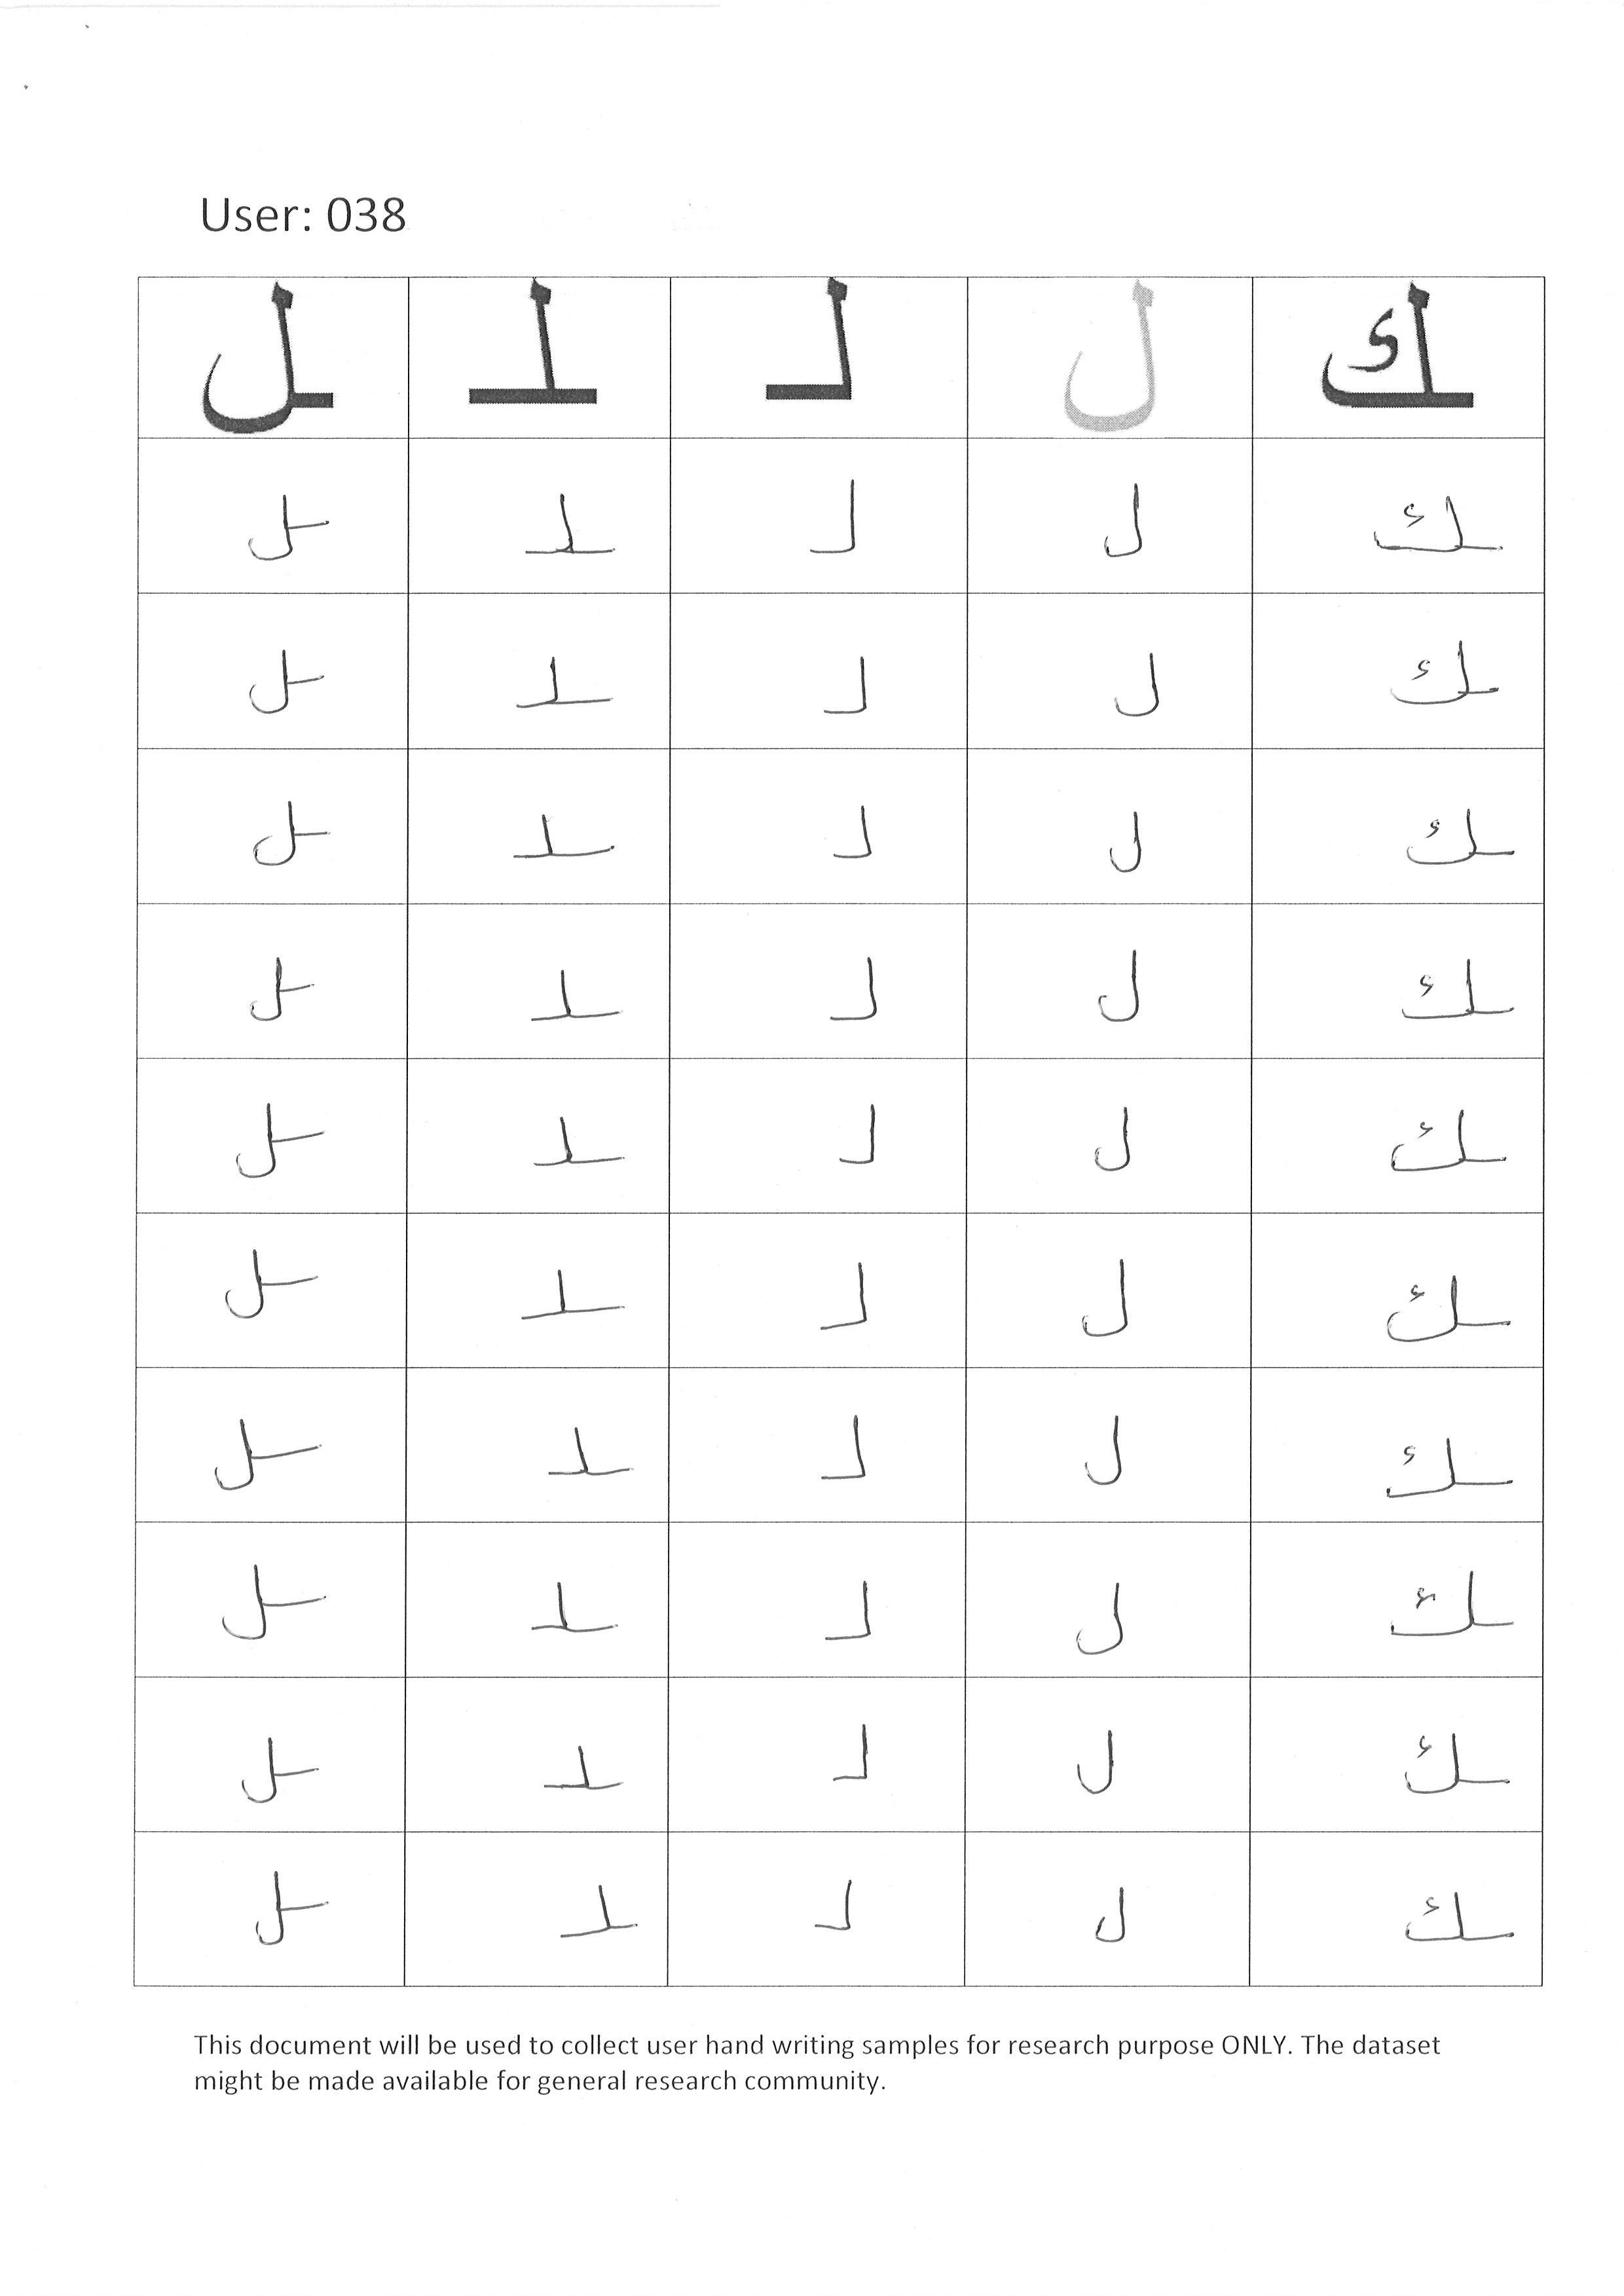 User: 038
ـك ل لـ ـلـ ـل
ـك ل لـ ـلـ ـل
ـك ل لـ ـلـ ـل
ـك ل لـ ـلـ ـل
ـك ل لـ ـلـ ـل
ـك ل لـ ـلـ ـل
ـك ل لـ ـلـ ـل
ـك ل لـ ـلـ ـل
ـك ل لـ ـلـ ـل
ـك ل لـ ـلـ ـل
ـك ل لـ ـلـ ـل
This document will be used to collect user hand writing samples for research purpose ONLY. The dataset
might be made available for general research community.